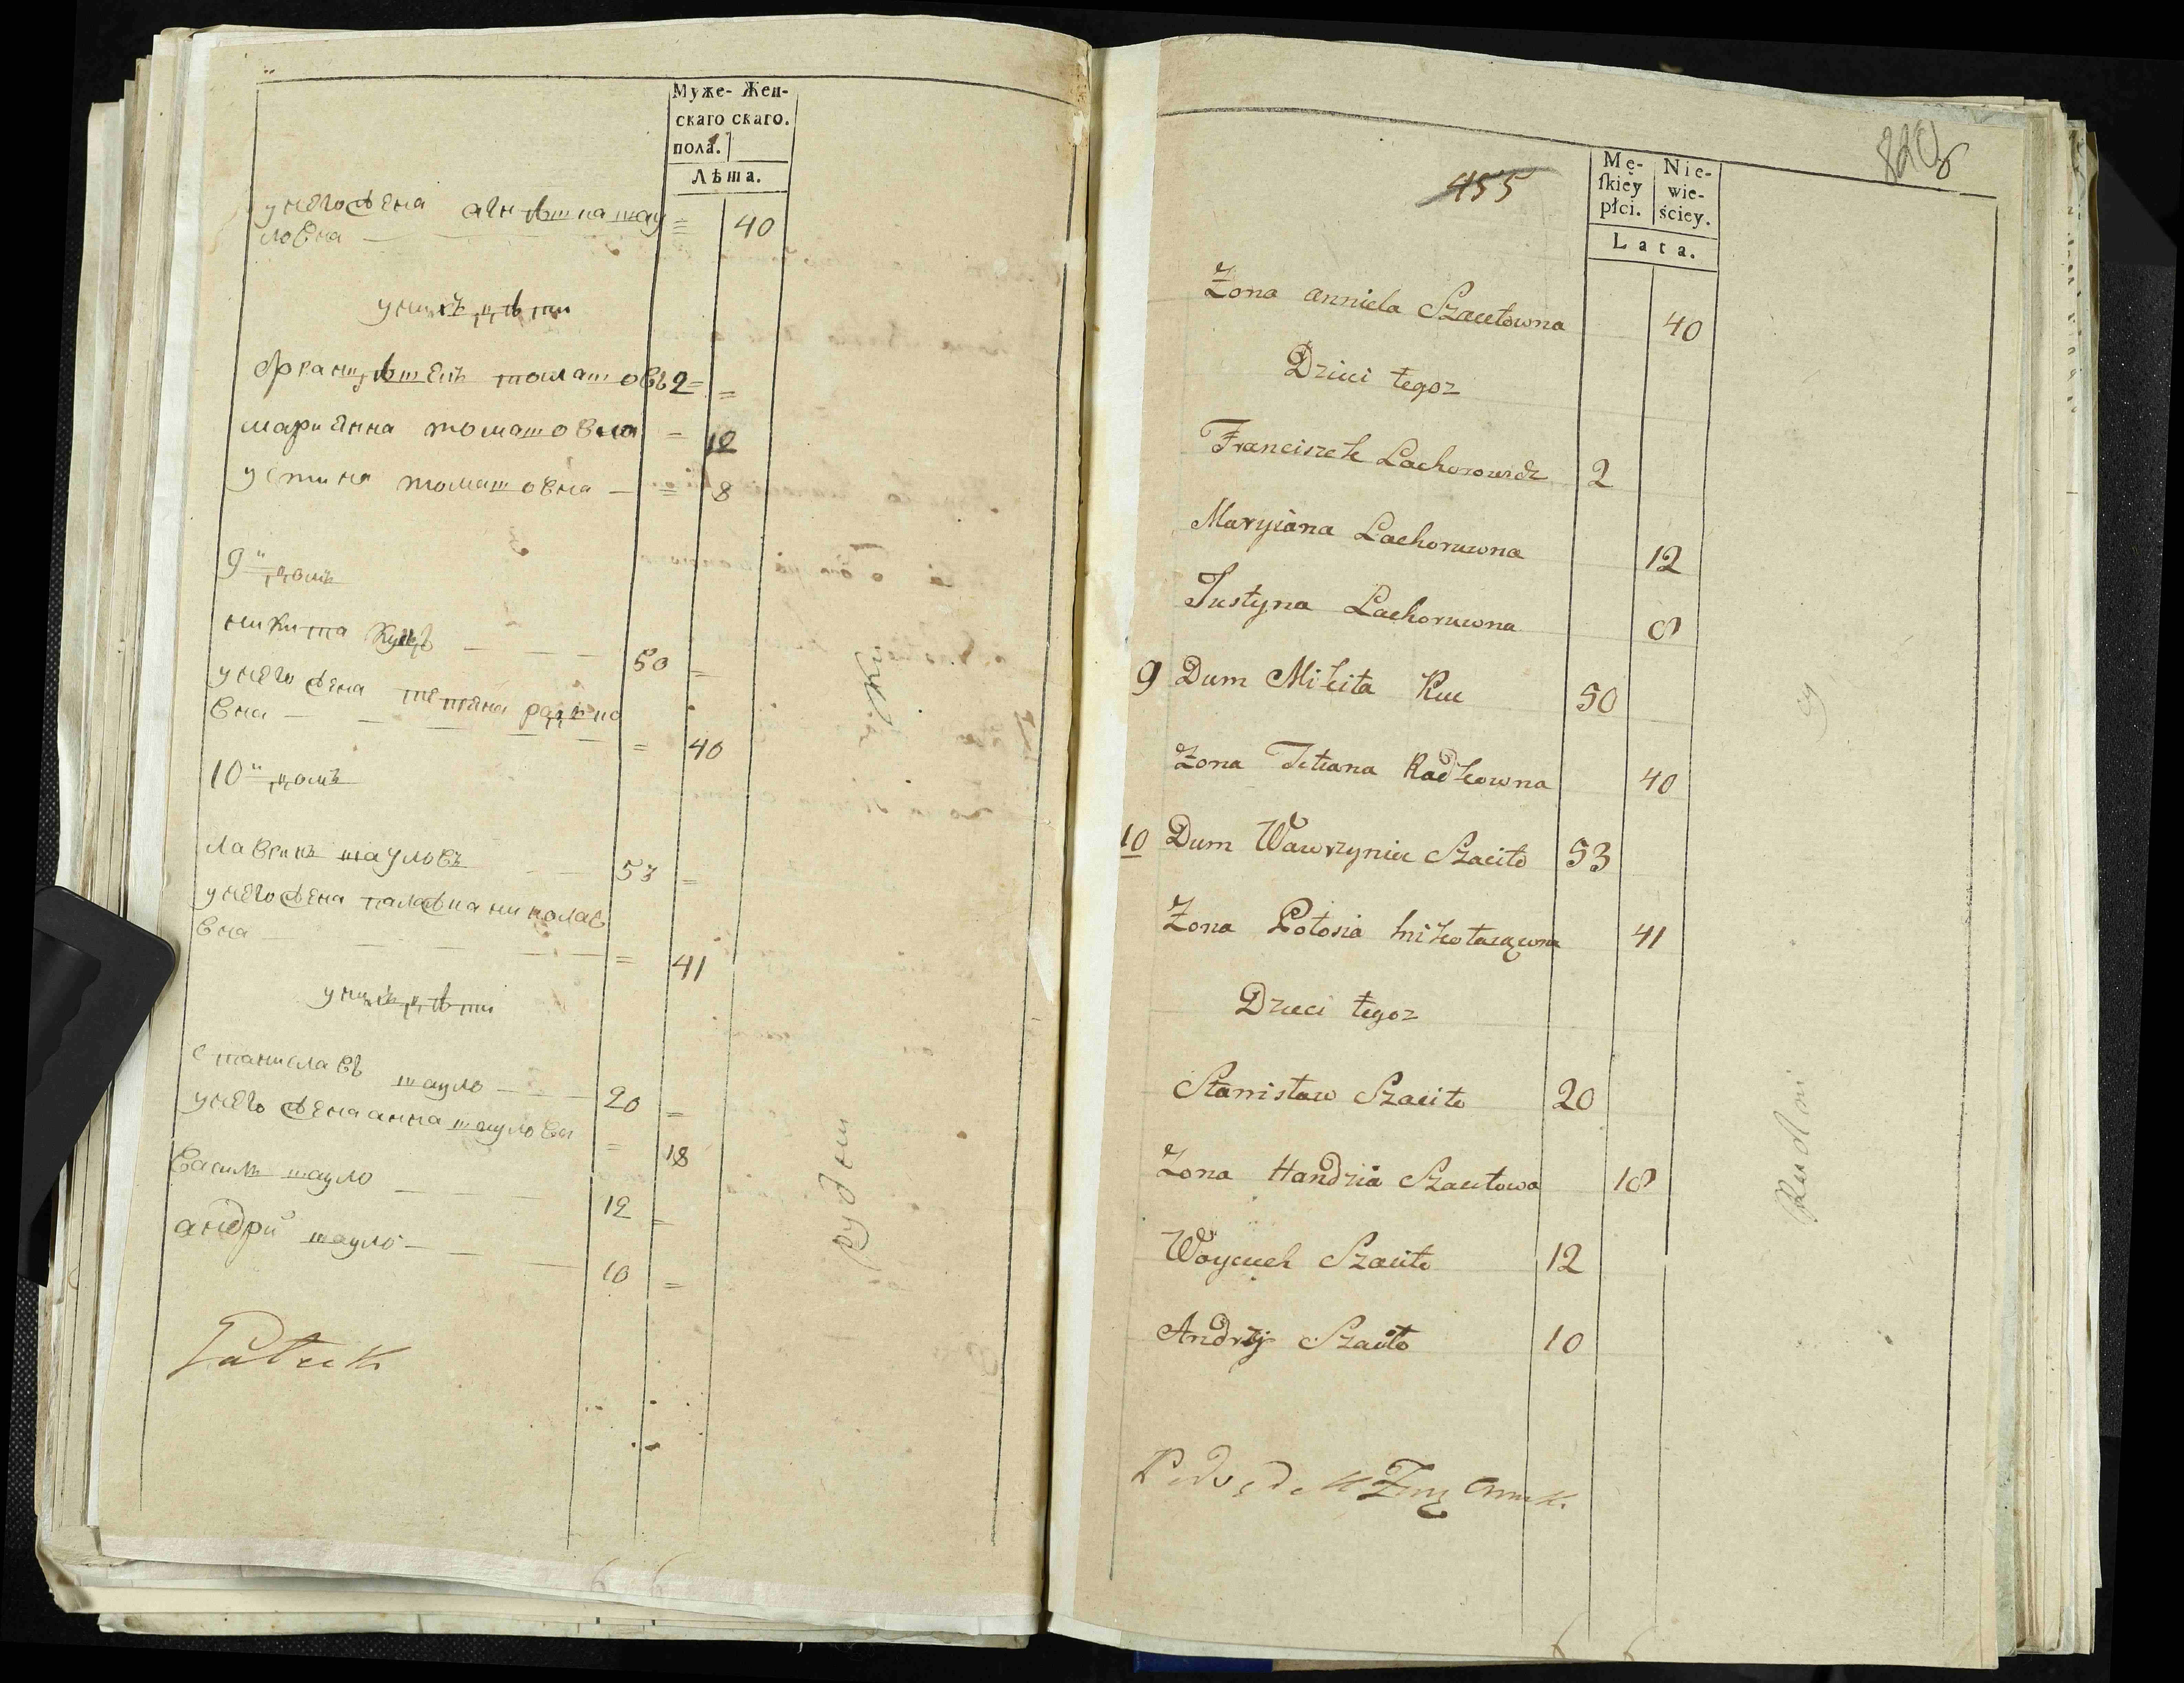 Муже- Жен-
скаго скаго.
пола.
Лѣта.
у него жена анѣта шау
ловна — = 40
у них дѣти
Францѣшек томашовъ 2 =
марианна томашовна = 12
устина томашовна — = 8
9й домъ
никита Куцъ — 50 =
у него жена тетяна радко
вна — = 40
10й домъ
Лаврик шауловъ 53 =
у него жена палажка николае
вна — = 41
у них дѣти
станислав шауло — 20 =
у него жена анна шаулова = 18
Василь шауло — 12 =
андрий шауло — 10 =
рудни
455
Mę- Nie-
skiey wie-
płci. ściey.
Lata.
Żona anniela Szaułowna 40
Dzieci tegoz
Franciszek Lachorowicz 2
Maryiana Lachoruwna 12
Justyna Lachoruwna 8
9 Dum Mikita Kuc 50
Zona Tetiana Radkowna 40
10 Dum Wawrzyniec Szaiło 53
Zona Połosia 41
Dzieci tegoz
Stanisław Szaiło 20
Zona Handzia Szaułowa 18
Woyciech Szaiło 12
Andrzij Szaiło 10
Rudni